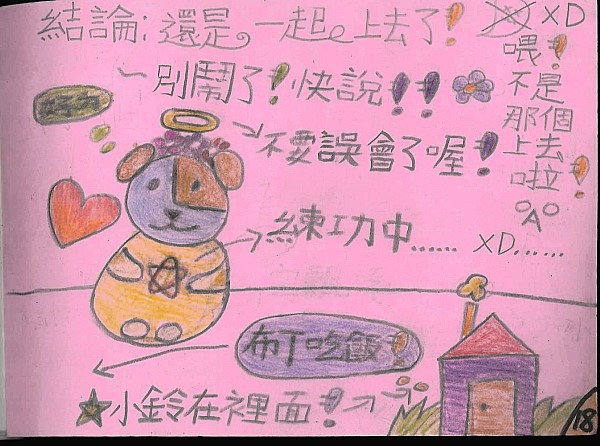 結論:還是一起上去了! XD
喂!
不是
那個
上去
啦!
°A°
~別鬧了!快說!!
不要誤會了喔!
練功中...... XD......
布丁吃飯!
★小鈴在裡面!
18